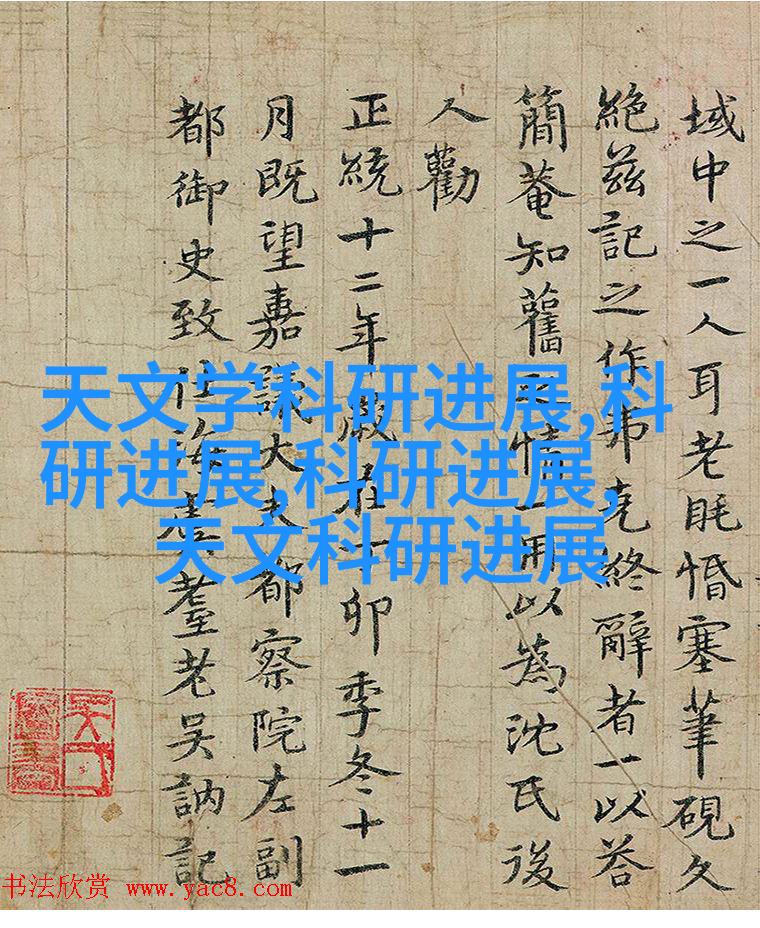 域中之一人耳老眊惛塞筆硯久
絕茲記之作弗克終辭者一以荅
簡菴知舊情一用以為沈氏後
人勸
正統十二年歲在丁卯季冬十一
月既望嘉議大夫都察院左副
都御史致仕海虞耋老吳訥記
天文学科研进展,科
研进展,科研进展,
天文科研进展
书法欣赏 www.yac8.com